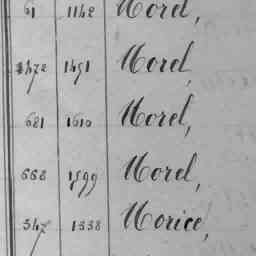 61 1142 Morel,
3472 1491 Morel,
681 1610 Morel,
668 1899 Morel,
547 1338 Morice,